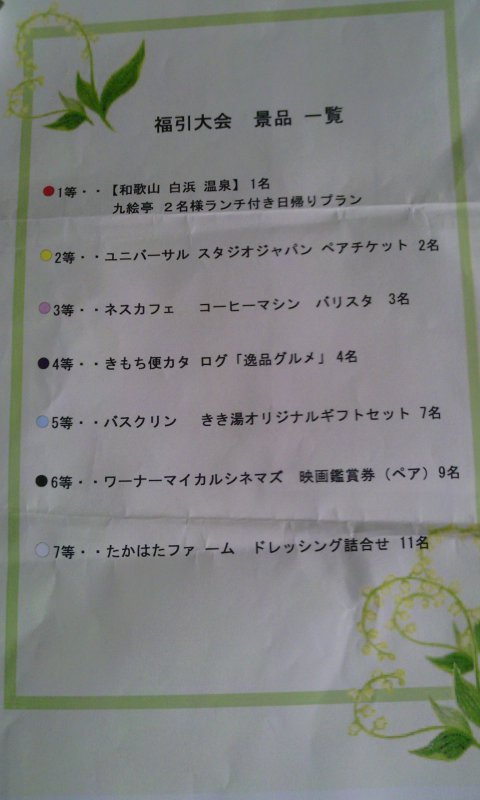 福引大会 景品 一覧
1等・・【和歌山 白浜 温泉】 1名
九絵亭 2名様ランチ付き日帰りプラン
2等・・ユニバーサル スタジオジャパン ペアチケット 2名
3等・・ネスカフェ コーヒーマシン バリスタ 3名
4等・・きもち便カタ ログ「逸品グルメ」 4名
5等・・バスクリン きき湯オリジナルギフトセット 7名
6等・・ワーナーマイカルシネマズ 映画鑑賞券（ペア）9名
7等・・たかはたファ ーム ドレッシング詰合せ 11名